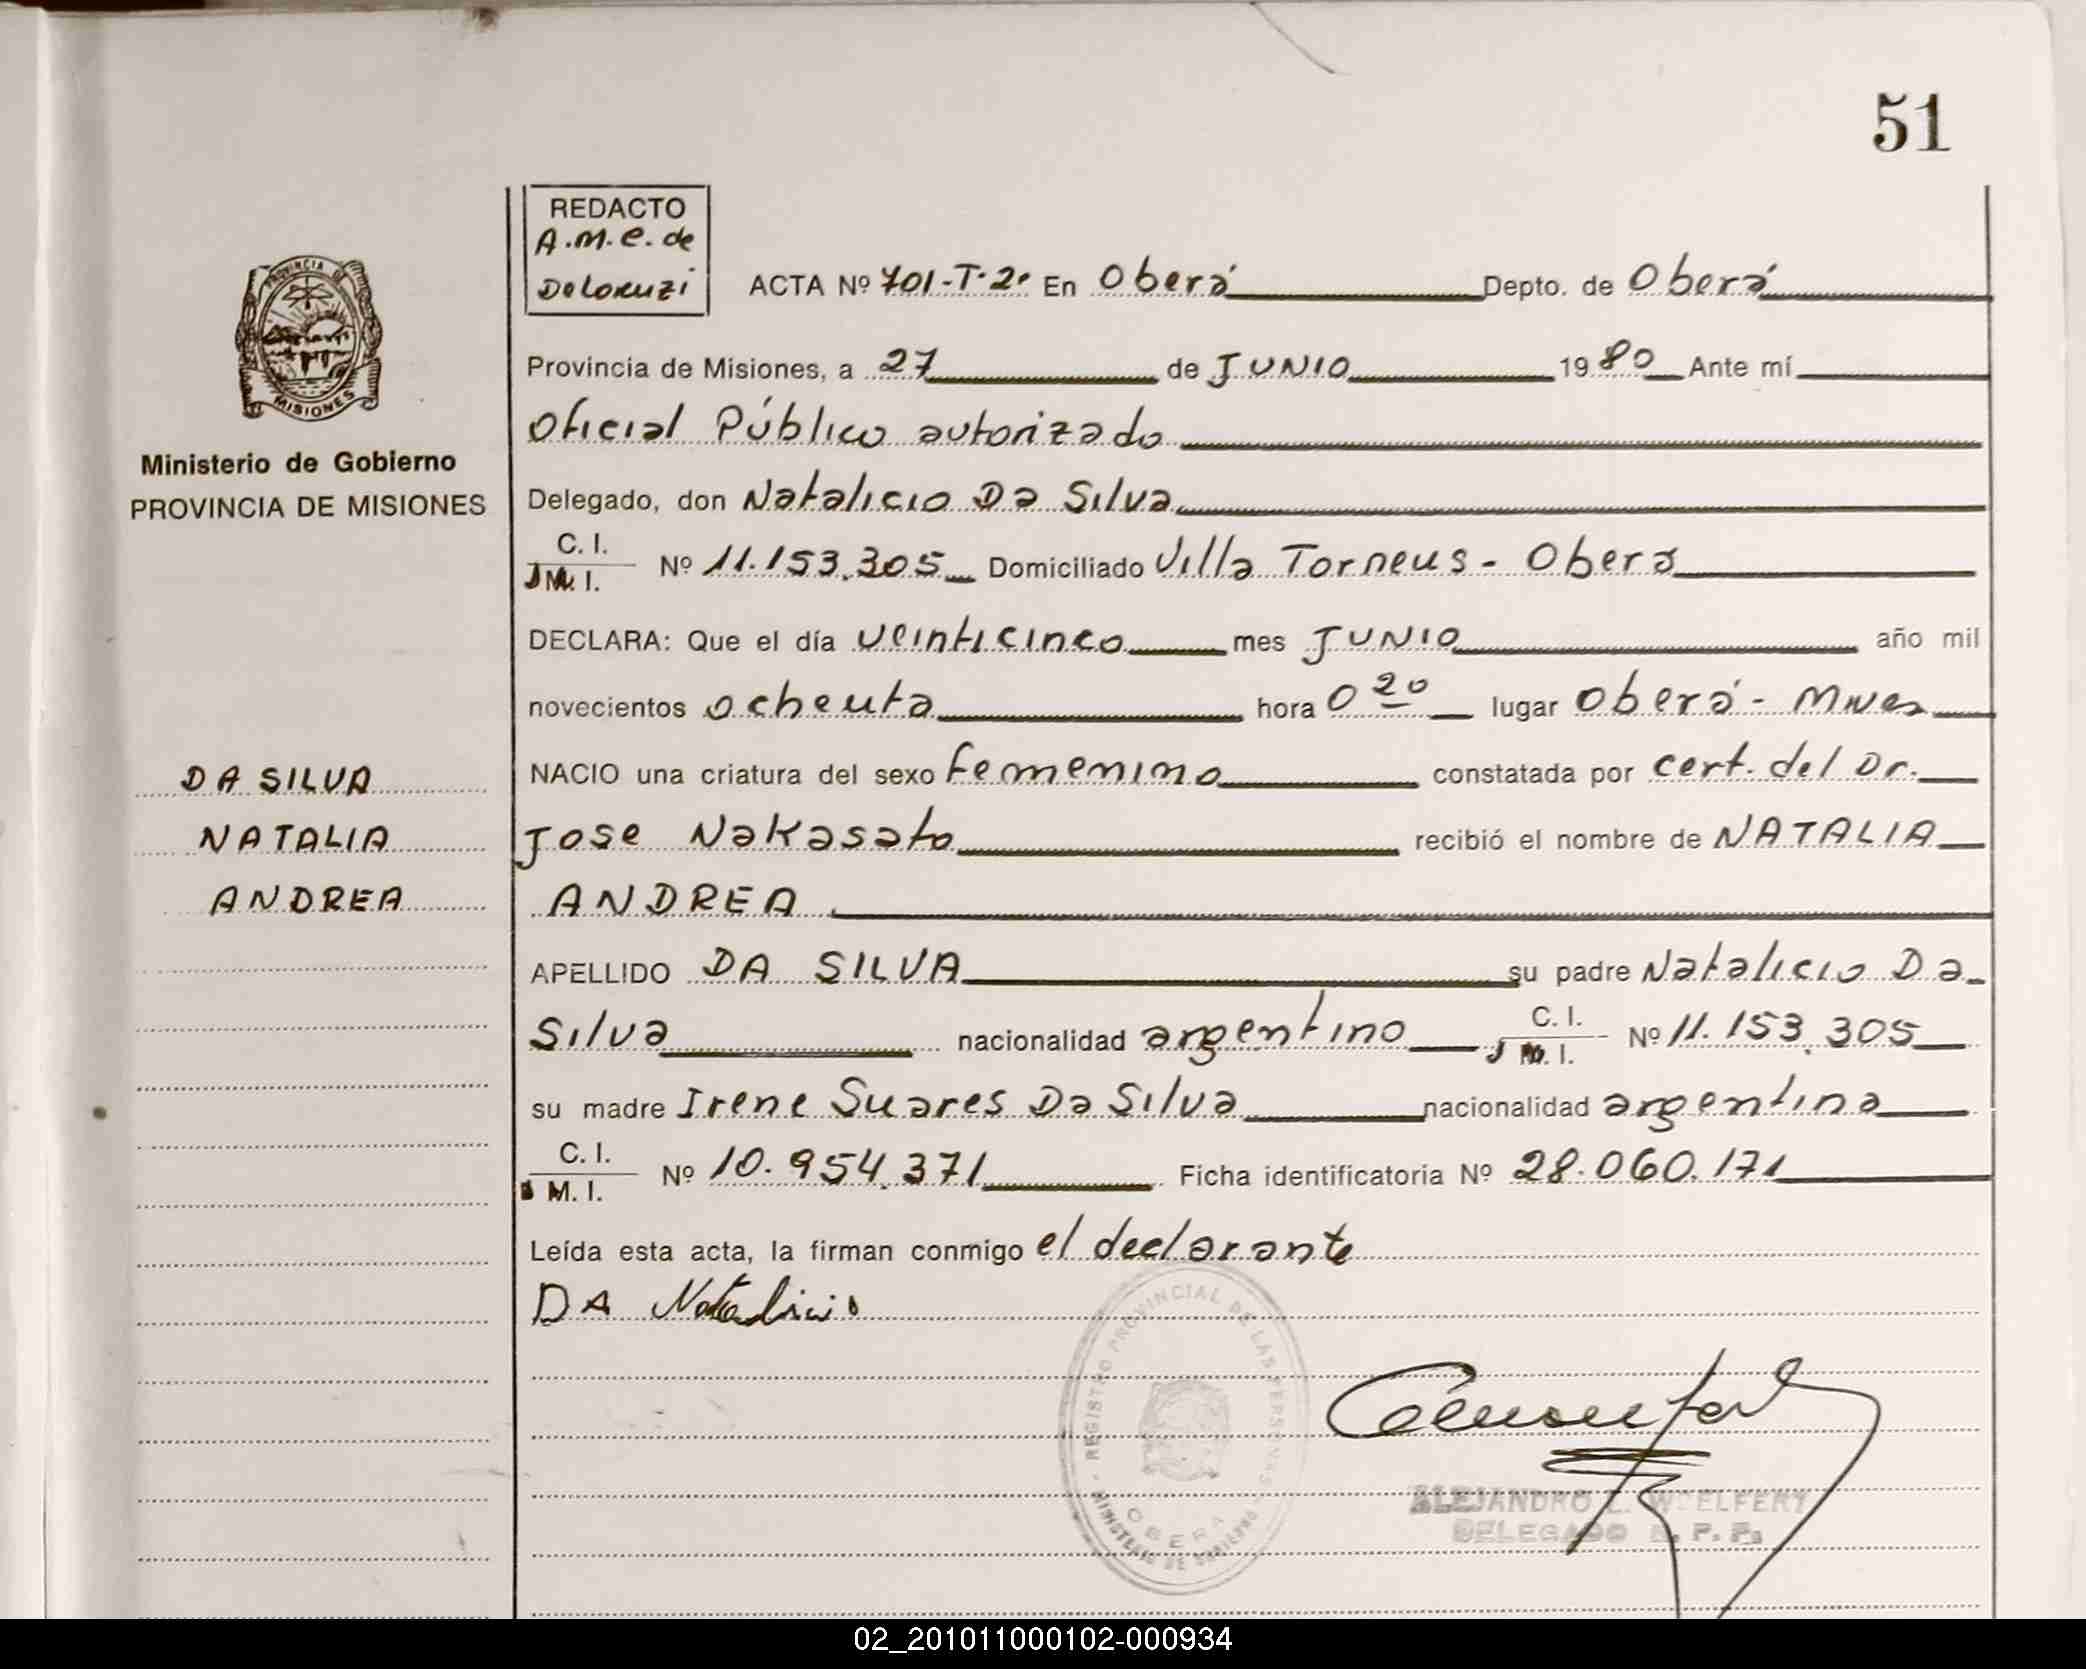 51
REDACTO
A.M.E. de
DeLoruzi
ACTA Nº 701-T·2º En Oberá Depto. de Oberá
Provincia de Misiones, a 27 de JUNIO 1980 Ante mí
Oficial Público autorizado
Delegado, don Natalicio Da Silva
C. I.
M. I. Nº 11.153.305 Domiciliado Villa Torneus - Obera
DECLARA: Que el día veinticinco mes JUNIO año mil
novecientos ochenta hora 0 20 lugar Oberá - Mnes
NACIO una criatura del sexo femenino constatada por cert. del Dr.
Jose Nakasato recibió el nombre de NATALIA
ANDREA
APELLIDO DA SILVA su padre Natalicio Da
Silva nacionalidad argentino C. I.
M. I. Nº 11.153.305
su madre Irene Suares Da Silva nacionalidad argentina
C. I.
M. I. Nº 10.954.371 Ficha identificatoria Nº 28.060.171
Leída esta acta, la firman conmigo el declarante
DA Natalicio
PROVINCIA DE
MISIONES
Ministerio de Gobierno
PROVINCIA DE MISIONES
DA SILVA
NATALIA
ANDREA
REGISTRO PROVINCIAL DE LAS PERSONAS
MINISTERIO DE GOBIERNO
OBERA
ALEJANDRO L. WOELFERT
DELEGADO R. P. P.
02_201011000102-000934